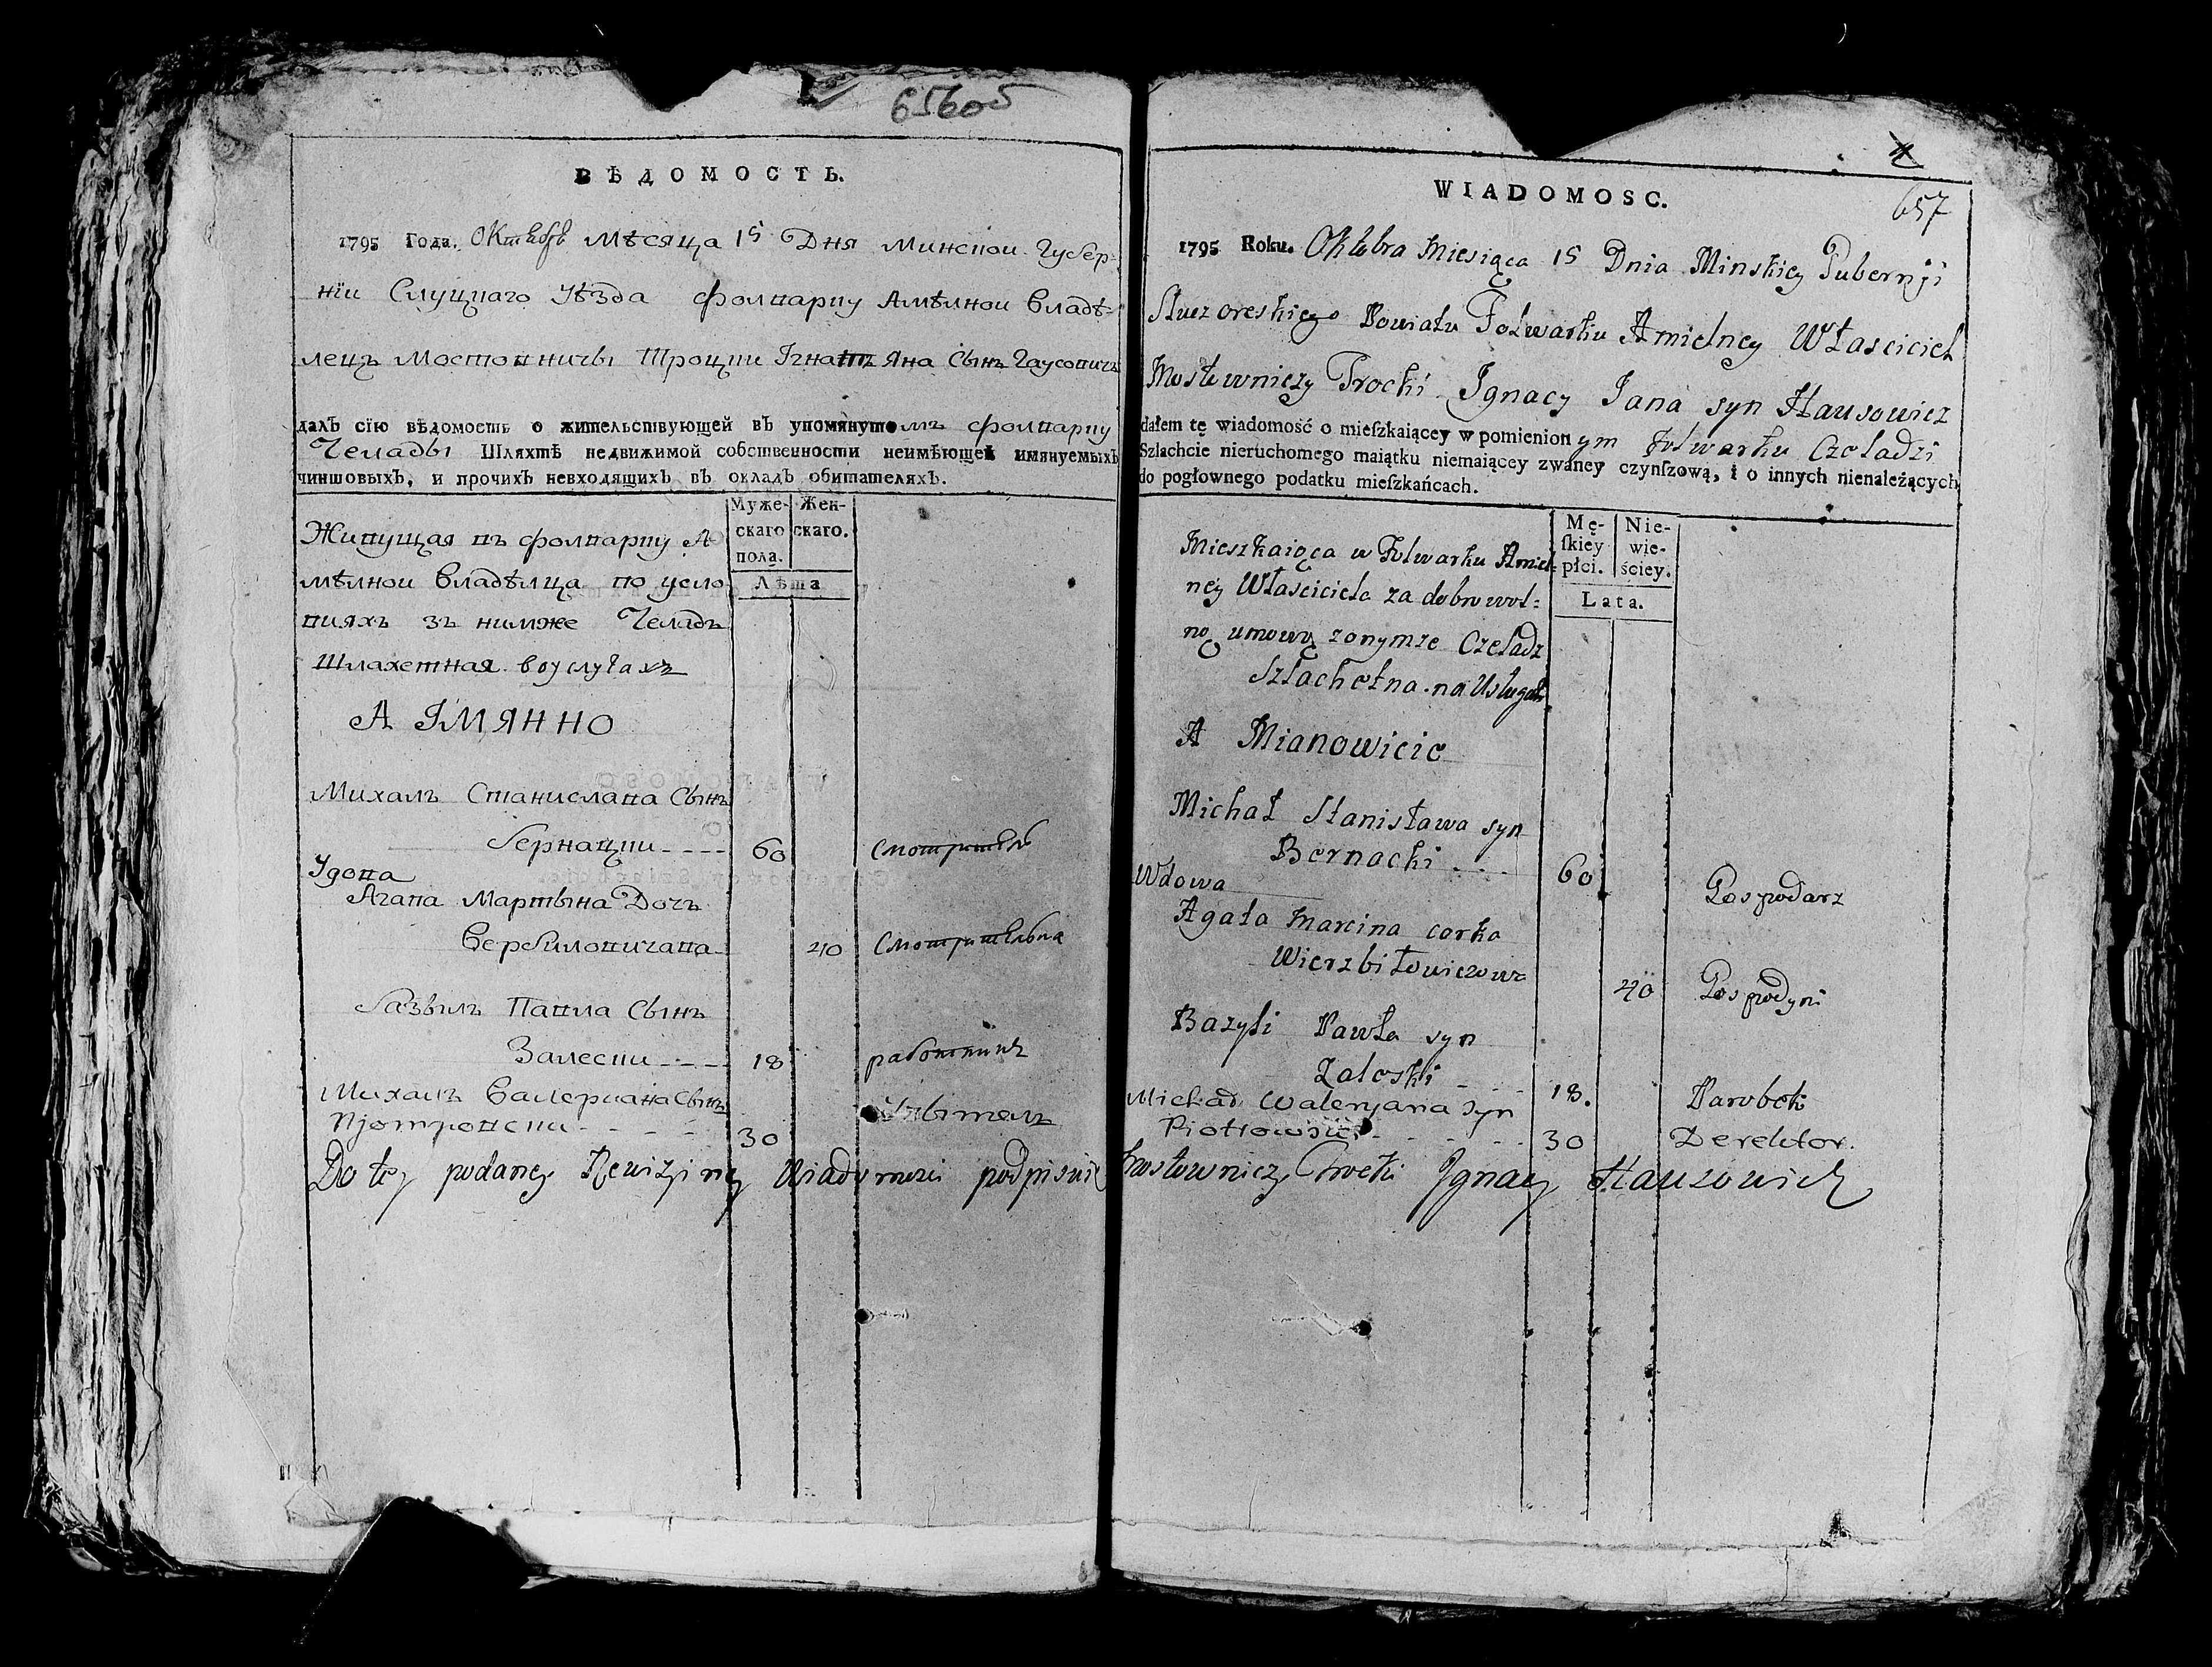 65605
ВѢДОМОСТЬ.
1795 Года. Октября мѣсяца 15 Дня Минской Губер-
нiи Слуцкаго Уѣзда Фолварку Амѣлной Владѣ-
лецъ Мостовничы Троцки Игнатъ Яна Сынъ Гаусовичъ
далъ сїю вѣдомость о жительствующей въ упомянутомъ фолварку
Челяды Шляхтѣ недвижимой собственности неимѣющей имянуемыхъ
чиншовыхъ, и прочихъ невходящихъ въ окладъ обитателяхъ.
Муже-скаго пола. Жен-скаго.
Лѣта
Живущая въ фолварку А-
мѣлной Владѣлца по усло-
вияхъ зъ нимже Челядь
Шляхетная в оуслугахъ
А ІМЯННО
Михалъ Станислава Сынъ
Бернацки 60 смотритель
Удова
Агата Мартына Дочь
Вербиловичава 40 смотрителька
Базыль Павла Сынъ
Залески 18 работникъ
Михалъ Валериана Сынъ
Пiотровски 30 учитель
Do tey podaney Rewizyiney Wiadomosci podpisuie Mostowniczy Trocki Ignacy Hauzowicz
4
657
WIADOMOSC.
1795 Roku. Oktobra Miesiąca 15 Dnia Minskiey Gubernji
Słuczoreskiego Powiatu Folwarku Amielney Własciciel
Mostowniczy Trocki Ignacy Jana syn Hausowicz
dałem tę wiadomość o mieſzkaiącey w pomienionym folwarku Czeladzi
Szlachcie nieruchomego maiątku niemaiącey zwaney czynſzową, i o innych nienależących
do pogłownego podatku mieſzkańcach.
Mę-ſkiey płci. Nie-wie-ściey.
Lata.
Mieszkaiąca w Folwarku Amiel-
ney Własciciela za dobrowol-
ną umową zonymze Czeladz
Szlachetna na Usługach
A Mianowicie
Michał Stanisława syn
Bernacki 60 Gospodarz
Wdowa
Agata Marcina corka
Wierzbiłowiczowa 40 Gospodyni
Bazyli Pawła syn
Zaleski 18. Parobek
Michał Waleryana Syn
Piotrowski 30 Derektor.